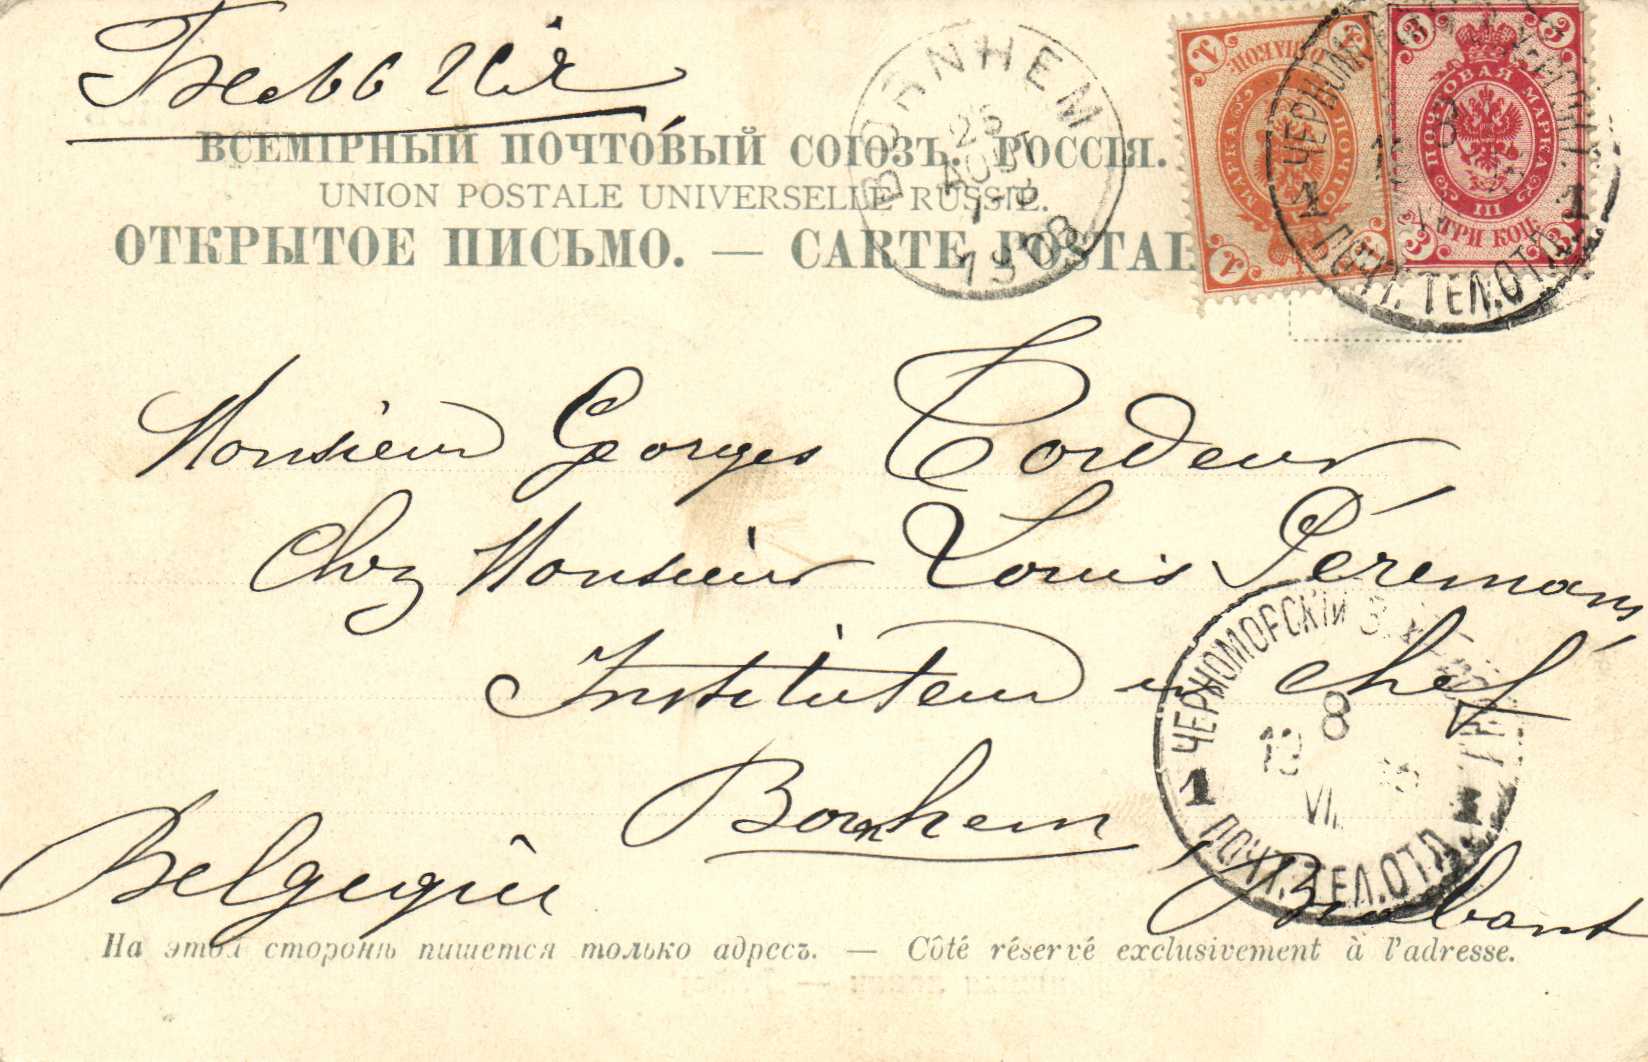 Бельгия
ВСЕМІРНЫЙ ПОЧТОВЫЙ СОЮЗЪ. РОССІЯ.
UNION POSTALE UNIVERSELLE RUSSIE.
ОТКРЫТОЕ ПИСЬМО. — CARTE POSTAL
BORNHEM
25
AOUT
1908
МАРКА ПОЧТОВАЯ
1 1 1
3 3
ПОЧТОВАЯ МАРКА
III
ТРИ КОП.
3 3
1 ПОЧТ. ТЕЛ. ОТД. 1
Monsieur Georges Cordeur
Chez Monsieur Louis Péremans
Instituteur en chef
Bornhem
Brabant
Belgique
ЧЕРНОМОРСКІЙ
8
VII
1 ПОЧТ. ТЕЛ. ОТД.
На этой сторонѣ пишется только адресъ. — Côté réservé exclusivement à l'adresse.